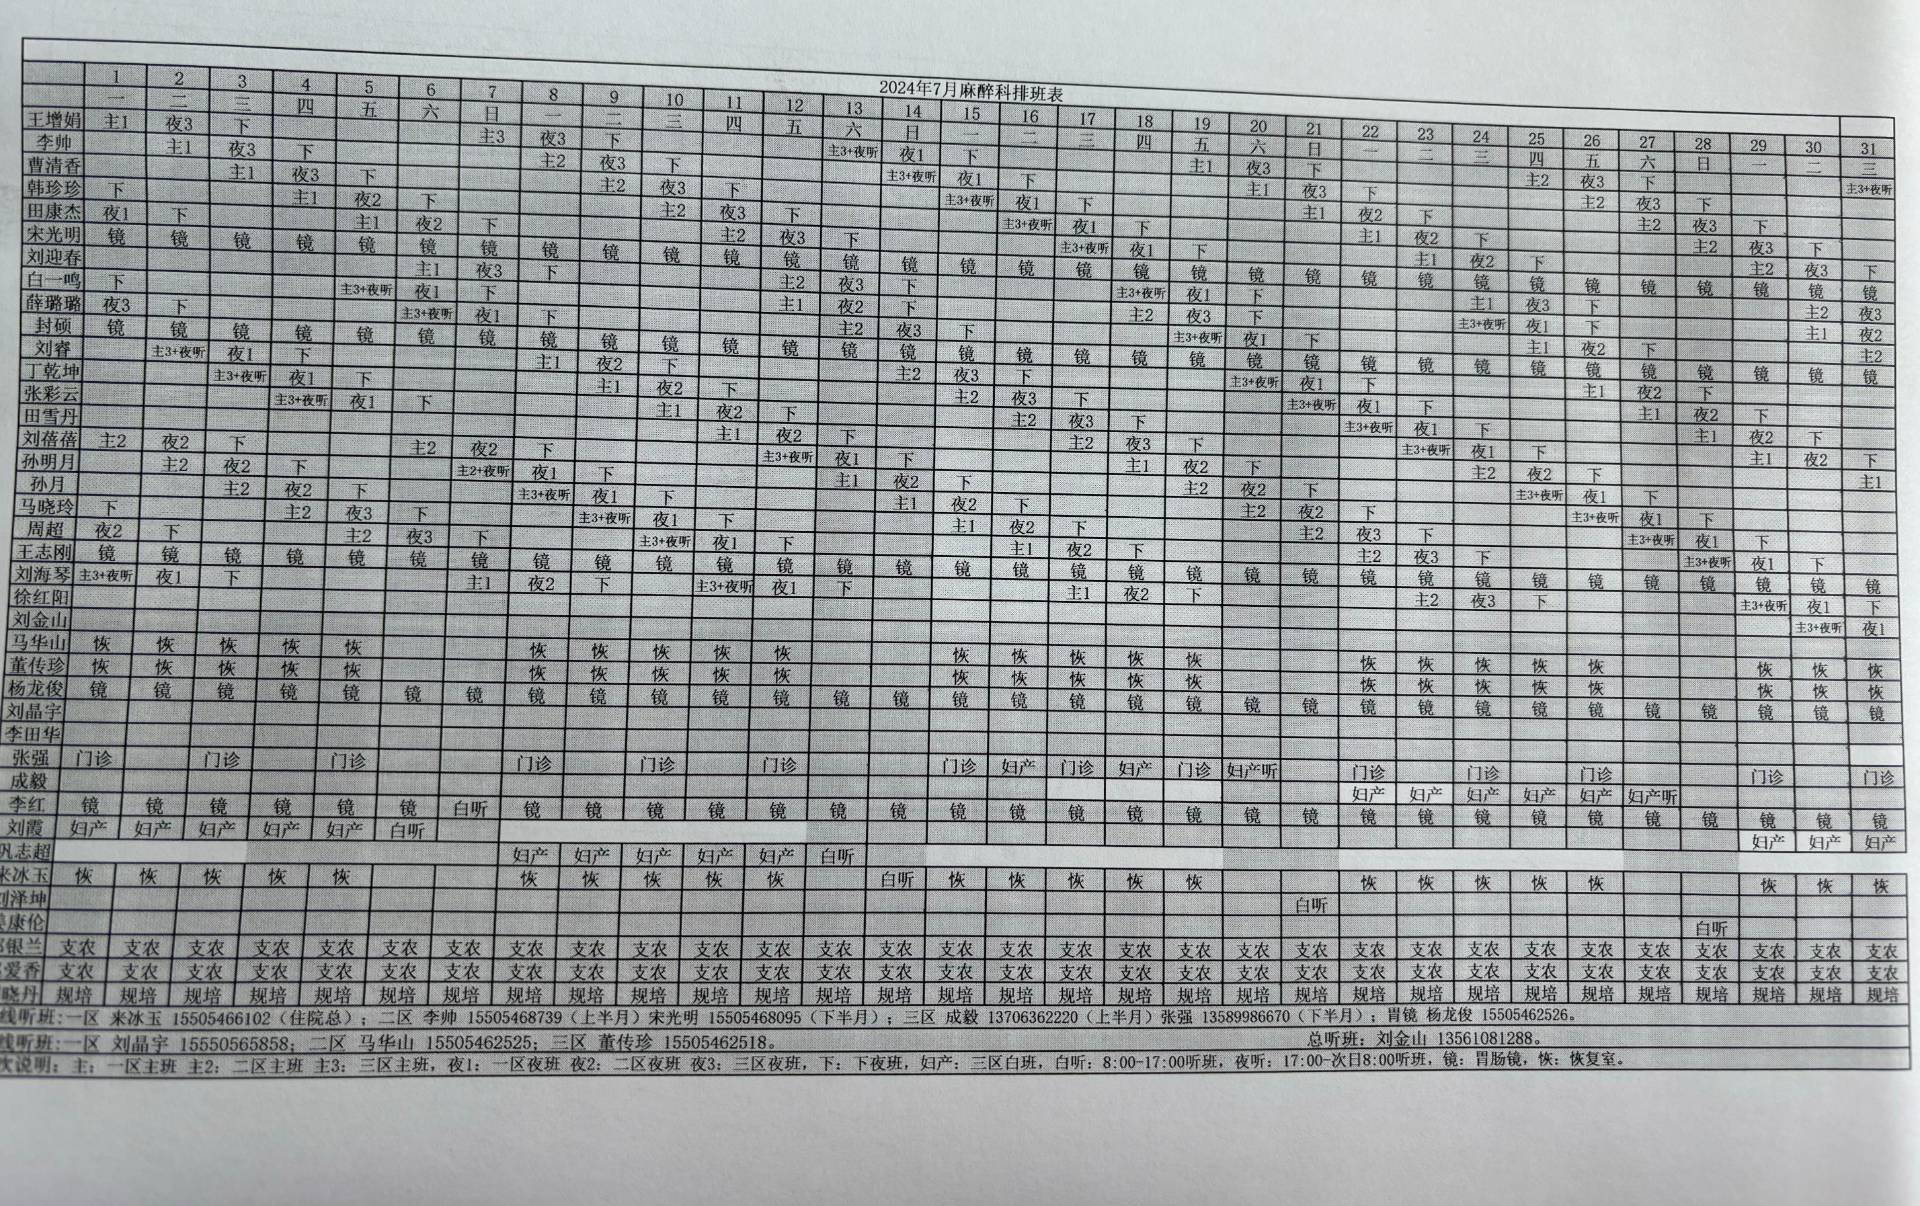 2024年7月麻醉科排班表
1 2 3 4 5 6 7 8 9 10 11 12 13 14 15 16 17 18 19 20 21 22 23 24 25 26 27 28 29 30 31
一 二 三 四 五 六 日 一 二 三 四 五 六 日 一 二 三 四 五 六 日 一 二 三 四 五 六 日 一 二 三
王增娟 主1 夜3 下 主3 夜3 下 主3+夜听 夜1 下 主1 夜3 下 主2 夜3 下 主3+夜听
李帅 主1 夜3 下 主2 夜3 下 主3+夜听 夜1 下 主1 夜3 下 主2 夜3 下
曹清香 主1 夜3 下 主2 夜3 下 主3+夜听 夜1 下 主1 夜2 下 主2 夜3 下
韩珍珍 下 主1 夜2 下 主2 夜3 下 主3+夜听 夜1 下 主1 夜2 下 主2 夜3 下
田康杰 夜1 下 主1 夜2 下 主2 夜3 下 主3+夜听 夜1 下 主1 夜2 下 主2 夜3 下
宋光明 镜 镜 镜 镜 镜 镜 镜 镜 镜 镜 镜 镜 镜 镜 镜 镜 镜 镜 镜 镜 镜 镜 镜 镜 镜 镜 镜 镜 镜 镜 镜
刘迎春 主1 夜3 下 主2 夜3 下 主3+夜听 夜1 下 主1 夜3 下 主2 夜3
白一鸣 下 主3+夜听 夜1 下 主1 夜2 下 主2 夜3 下 主3+夜听 夜1 下 主1 夜2
薛璐璐 夜3 下 主3+夜听 夜1 下 主2 夜3 下 主3+夜听 夜1 下 主1 夜2 下 主2
封硕 镜 镜 镜 镜 镜 镜 镜 镜 镜 镜 镜 镜 镜 镜 镜 镜 镜 镜 镜 镜 镜 镜 镜 镜 镜 镜 镜 镜 镜 镜 镜
刘睿 主3+夜听 夜1 下 主1 夜2 下 主2 夜3 下 主3+夜听 夜1 下 主1 夜2 下
丁乾坤 主3+夜听 夜1 下 主1 夜2 下 主2 夜3 下 主3+夜听 夜1 下 主1 夜2 下
张彩云 主3+夜听 夜1 下 主1 夜2 下 主2 夜3 下 主3+夜听 夜1 下 主1 夜2 下
田雪丹 主1 夜2 下 主2 夜3 下 主3+夜听 夜1 下 主1 夜2 下
刘蓓蓓 主2 夜2 下 主2 夜2 下 主3+夜听 夜1 下 主1 夜2 下 主2 夜2 下 主1
孙明月 主2 夜2 下 主2+夜听 夜1 下 主1 夜2 下 主2 夜2 下 主3+夜听 夜1 下
孙月 主2 夜2 下 主3+夜听 夜1 下 主1 夜2 下 主2 夜2 下 主3+夜听 夜1 下
马晓玲 下 主2 夜3 下 主3+夜听 夜1 下 主1 夜2 下 主2 夜3 下 主3+夜听 夜1 下
周超 夜2 下 主2 夜3 下 主3+夜听 夜1 下 主1 夜2 下 主2 夜3 下 主3+夜听 夜1 下
王志刚 镜 镜 镜 镜 镜 镜 镜 镜 镜 镜 镜 镜 镜 镜 镜 镜 镜 镜 镜 镜 镜 镜 镜 镜 镜 镜 镜 镜 镜 镜 镜
刘海琴 主3+夜听 夜1 下 主1 夜2 下 主3+夜听 夜1 下 主1 夜2 下 主2 夜3 下 主3+夜听 夜1 下
徐红阳 主3+夜听 夜1
刘金山
马华山 恢 恢 恢 恢 恢 恢 恢 恢 恢 恢 恢 恢 恢 恢 恢 恢 恢 恢 恢 恢 恢 恢 恢
董传珍 恢 恢 恢 恢 恢 恢 恢 恢 恢 恢 恢 恢 恢 恢 恢 恢 恢 恢 恢 恢 恢 恢 恢
杨龙俊 镜 镜 镜 镜 镜 镜 镜 镜 镜 镜 镜 镜 镜 镜 镜 镜 镜 镜 镜 镜 镜 镜 镜 镜 镜 镜 镜 镜 镜 镜 镜
刘晶宇
李田华
张强 门诊 门诊 门诊 门诊 门诊 门诊 门诊 妇产 门诊 妇产 门诊 妇产听 门诊 门诊 门诊 门诊 门诊
成毅 妇产 妇产 妇产 妇产 妇产 妇产听
李红 镜 镜 镜 镜 镜 镜 白听 镜 镜 镜 镜 镜 镜 镜 镜 镜 镜 镜 镜 镜 镜 镜 镜 镜 镜 镜 镜 镜 镜 镜 镜
刘霞 妇产 妇产 妇产 妇产 妇产 白听 妇产 妇产 妇产
志超 妇产 妇产 妇产 妇产 妇产 白听
来冰玉 恢 恢 恢 恢 恢 恢 恢 恢 恢 恢 白听 恢 恢 恢 恢 恢 恢 恢 恢 恢 恢 恢 恢 恢
泽坤 白听
康伦 白听
银兰 支农 支农 支农 支农 支农 支农 支农 支农 支农 支农 支农 支农 支农 支农 支农 支农 支农 支农 支农 支农 支农 支农 支农 支农 支农 支农 支农 支农 支农 支农 支农
爱香 支农 支农 支农 支农 支农 支农 支农 支农 支农 支农 支农 支农 支农 支农 支农 支农 支农 支农 支农 支农 支农 支农 支农 支农 支农 支农 支农 支农 支农 支农 支农
晓丹 规培 规培 规培 规培 规培 规培 规培 规培 规培 规培 规培 规培 规培 规培 规培 规培 规培 规培 规培 规培 规培 规培 规培 规培 规培 规培 规培 规培 规培 规培 规培
线听班:一区 来冰玉 15505466102（住院总）；二区 李帅 15505468739（上半月）宋光明 15505468095（下半月）；三区 成毅 13706362220（上半月）张强 13589986670（下半月）；胃镜 杨龙俊 15505462526。
线听班:一区 刘晶宇 15550565858；二区 马华山 15505462525；三区 董传珍 15505462518。 总听班：刘金山 13561081288。
次说明：主：一区主班 主2：二区主班 主3：三区主班，夜1：一区夜班 夜2：二区夜班 夜3：三区夜班，下：下夜班，妇产：三区白班，白听：8:00-17:00听班，夜听：17:00-次日8:00听班，镜：胃肠镜，恢：恢复室。